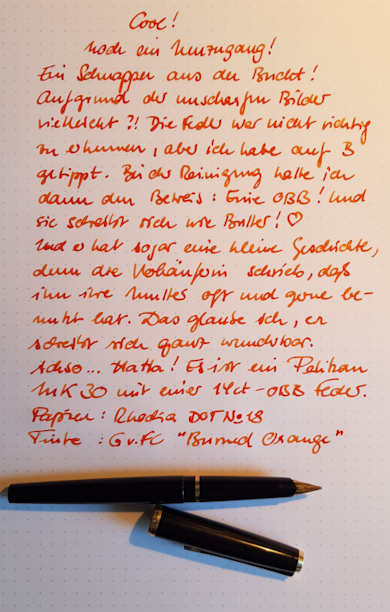 Cool!
noch ein Neuzugang!
Ein Schnapper aus der Bucht!
Aufgrund der unscharfen Bilder
vielleicht?! Die Feder war nicht richtig
zu erkennen, aber ich habe auf B
getippt. Bei der Reinigung hatte ich
dann den Beweis: Eine OBB! Und
sie schreibt sich wie Butter! ♡
Und er hat sogar eine kleine Geschichte,
denn die Verkäuferin schrieb, daß
ihn ihre Mutter oft und gerne be-
nutzt hat. Das glaube ich, er
schreibt sich ganz wunderbar.
Achso... Haha! Es ist ein Pelikan
MK 30 mit einer 14ct-OBB Feder.
Papier: Rhodia DOT No 18
Tinte : GvFC "Burned Orange"